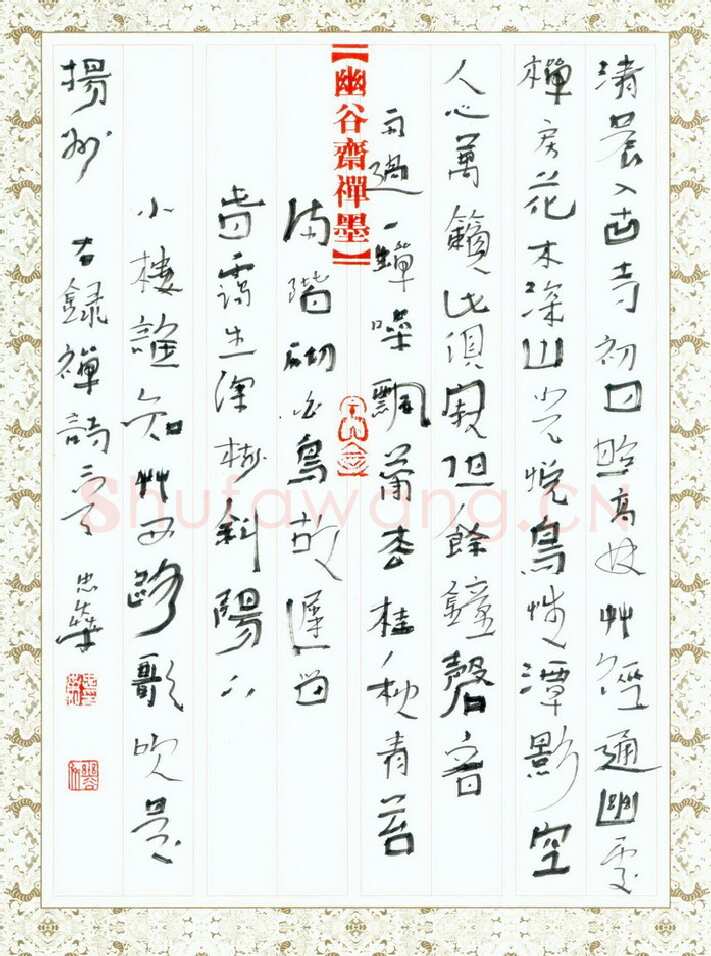 清晨入古寺初日照高林竹徑通幽處
禪房花木深山光悅鳥性潭影空
人心萬籟此俱寂但餘鐘磬音
雨過一蟬噪飄蕭松桂秋青苔
【幽谷齋禪墨】
滿階砌白鳥故遲留
暮靄生深樹斜陽下
小樓誰知竹西路歌吹是
揚州 右錄禪詩二首 忠
Shufawang.CN